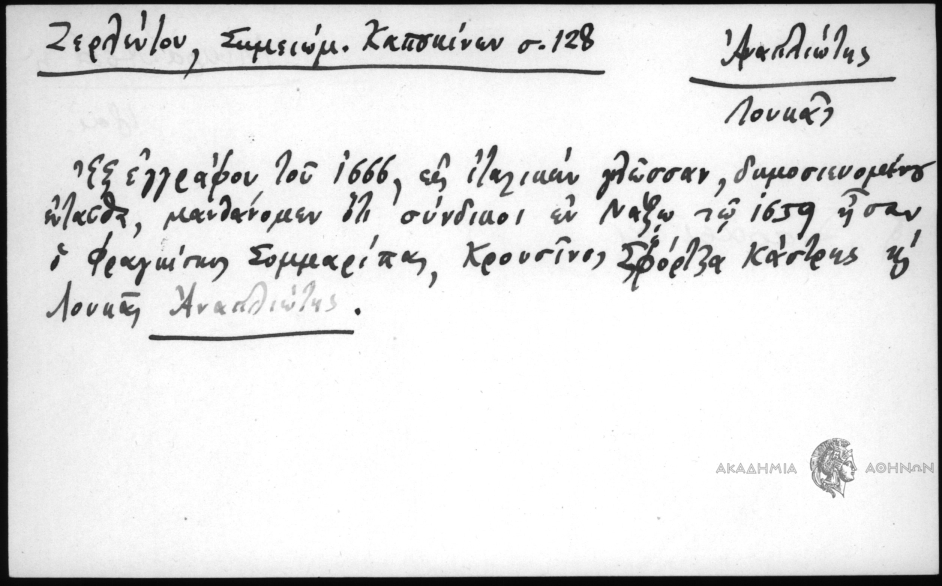 Ζερλέντου, Σημειώμ. Καπουκίνων σ. 128
Ἀναπλιώτης
Λουκᾶς
Ἐξ ἐγγράφου τοῦ 1666, εἰς ἰταλικὴν γλῶσσαν, δημοσιευομένου
ἐνταῦθα, μανθάνομεν ὅτι σύνδικοι ἐν Νάξῳ τῷ 1659 ἦσαν
ὁ Φραγκίσκος Σομμαρίπας, Κρουσῖνος Σφόρτζα Κάστρης κ
Λουκᾶς Ἀναπλιώτης.
ΑΚΑΔΗΜΙΑ ΑΘΗΝΩΝ